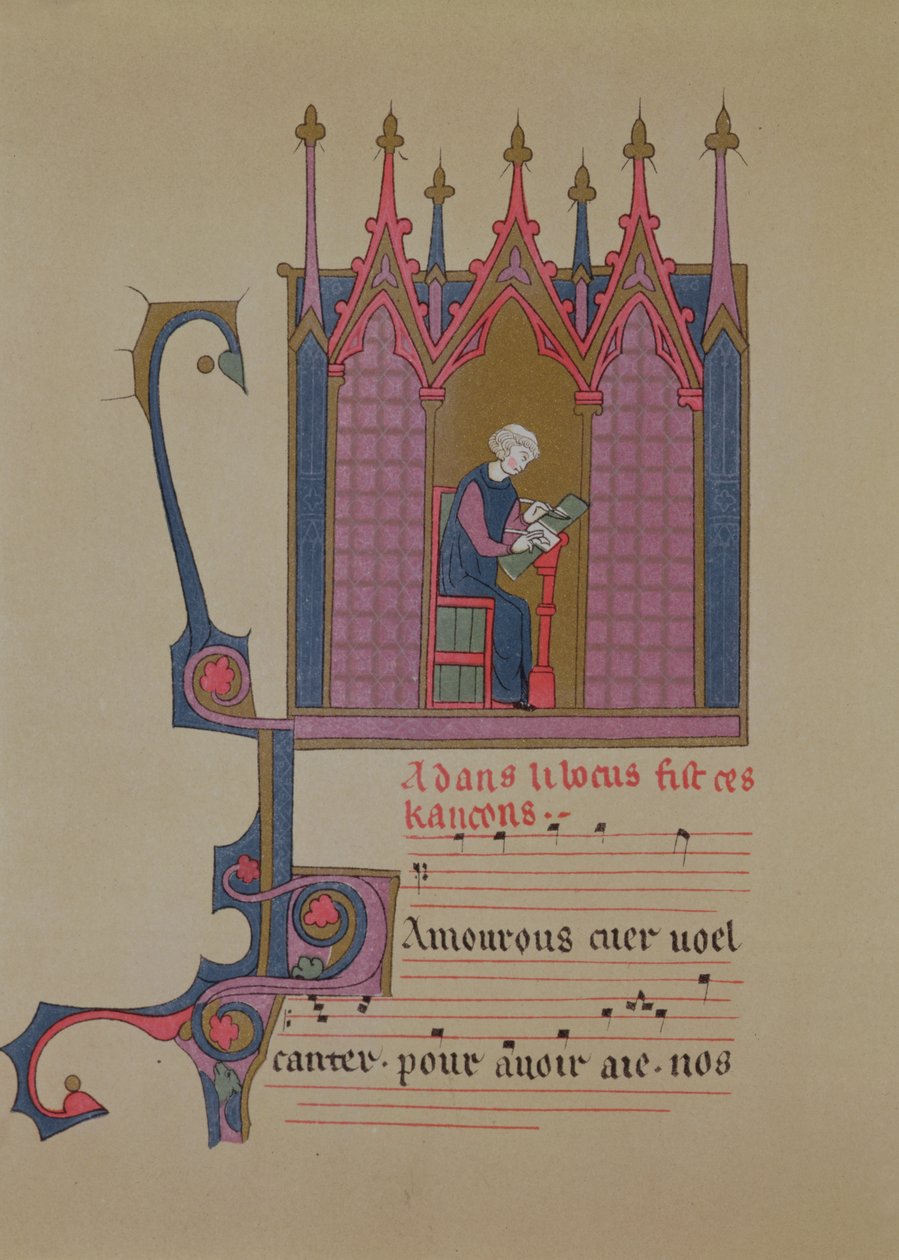 Adans li bocus fist ces
kancons :-
Amourous cuer uoel
canter · pour auoir aie · nos